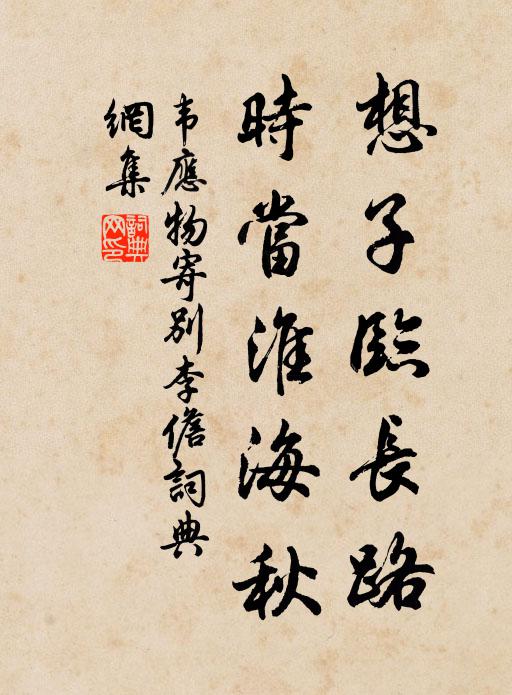 想子臨長路
時當淮海秋
韦應物寄别李儋詞典
網集
詞典
网印